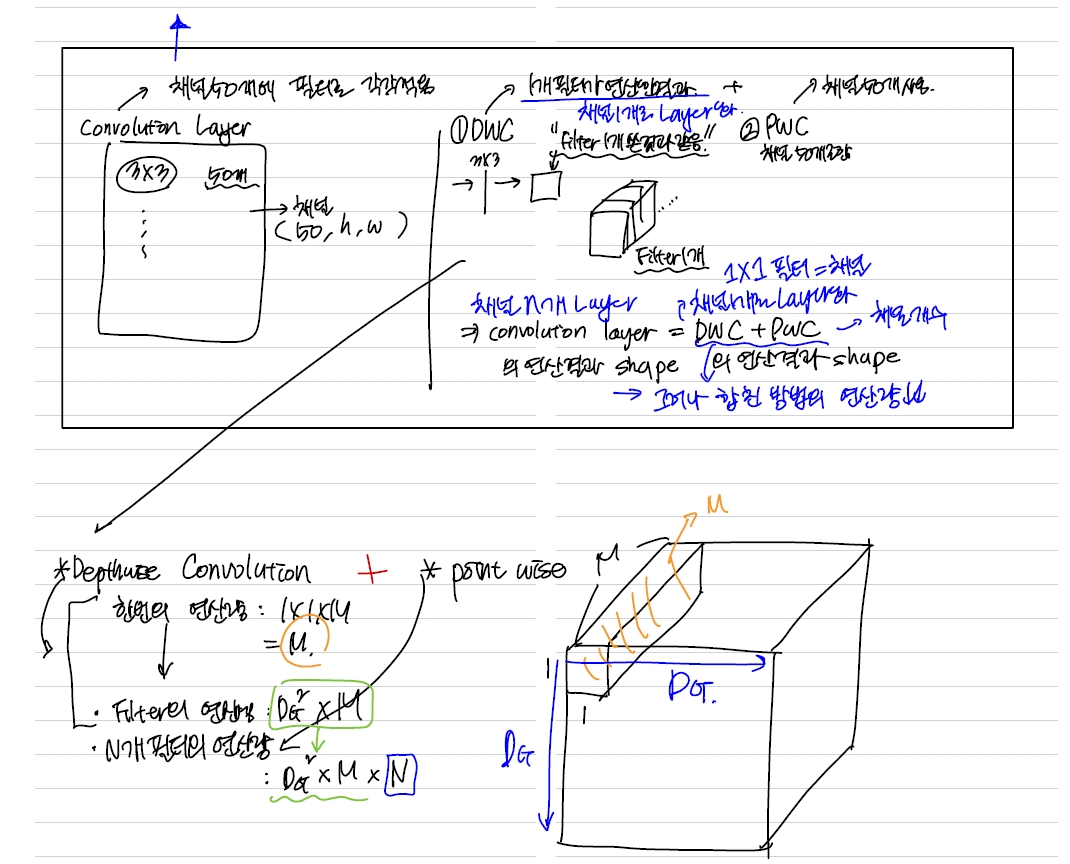 채널 50개에 필터로 각각적용
Convolution Layer
3X3 50개
채널
(50, h, w)
1개 필터가 연산한결과 +
채널1개로 Layer
① DWC
"Filter 1개 쓴것과 같음."
3X3
채널50개사용.
② PWC
채널 50개
Filter 1개
1X1 필터 = 채널
채널 N개 Layer
⇒ convolution layer = DWC + PWC → 채널개수
의 연산결과 shape 의 연산결과 shape
→ 그러나 합친 방법의 연산량
*Depthwise Convolution + * point wise
한번의 연산량 : 1X1XM
= M.
· Filter의 연산량 : DG² X M
· N개 필터의 연산량
: DG² X M X N
M
M
1
1
DG.
DG